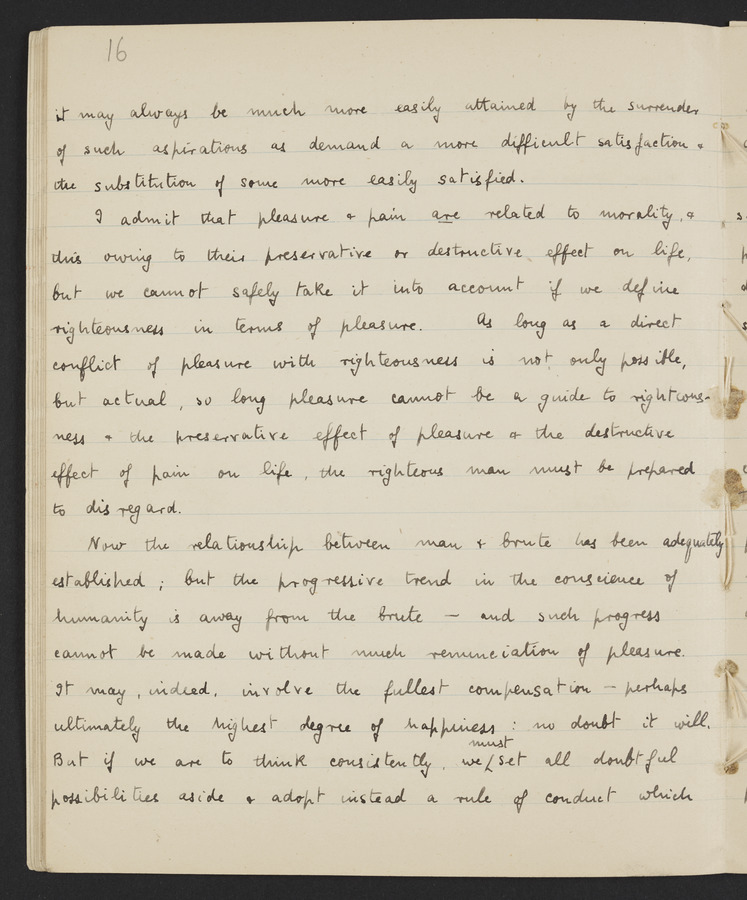 16
it may always be much more easily attained by the surrender
of such aspirations as demand a more difficult satisfaction &
the substitution of some more easily satisfied.
I admit that pleasure & pain are related to morality, &
this owing to their preservative or destructive effect on life,
but we cannot safely take it into account if we define
righteousness in terms of pleasure. As long as a direct
conflict of pleasure with righteousness is not only possible,
but actual, so long pleasure cannot be a guide to righteous-
ness & the preservative effect of pleasure & the destructive
effect of pain on life, the righteous man must be prepared
to disregard.
Now the relationship between man & brute has been adequately
established; but the progressive trend in the conscience of
humanity is away from the brute — and such progress
cannot be made without much renunciation of pleasure.
It may, indeed, involve the fullest compensation — perhaps
ultimately the highest degree of happiness: no doubt it will.
But if we are to think consistently, we must set all doubtful
possibilities aside & adopt instead a rule of conduct which